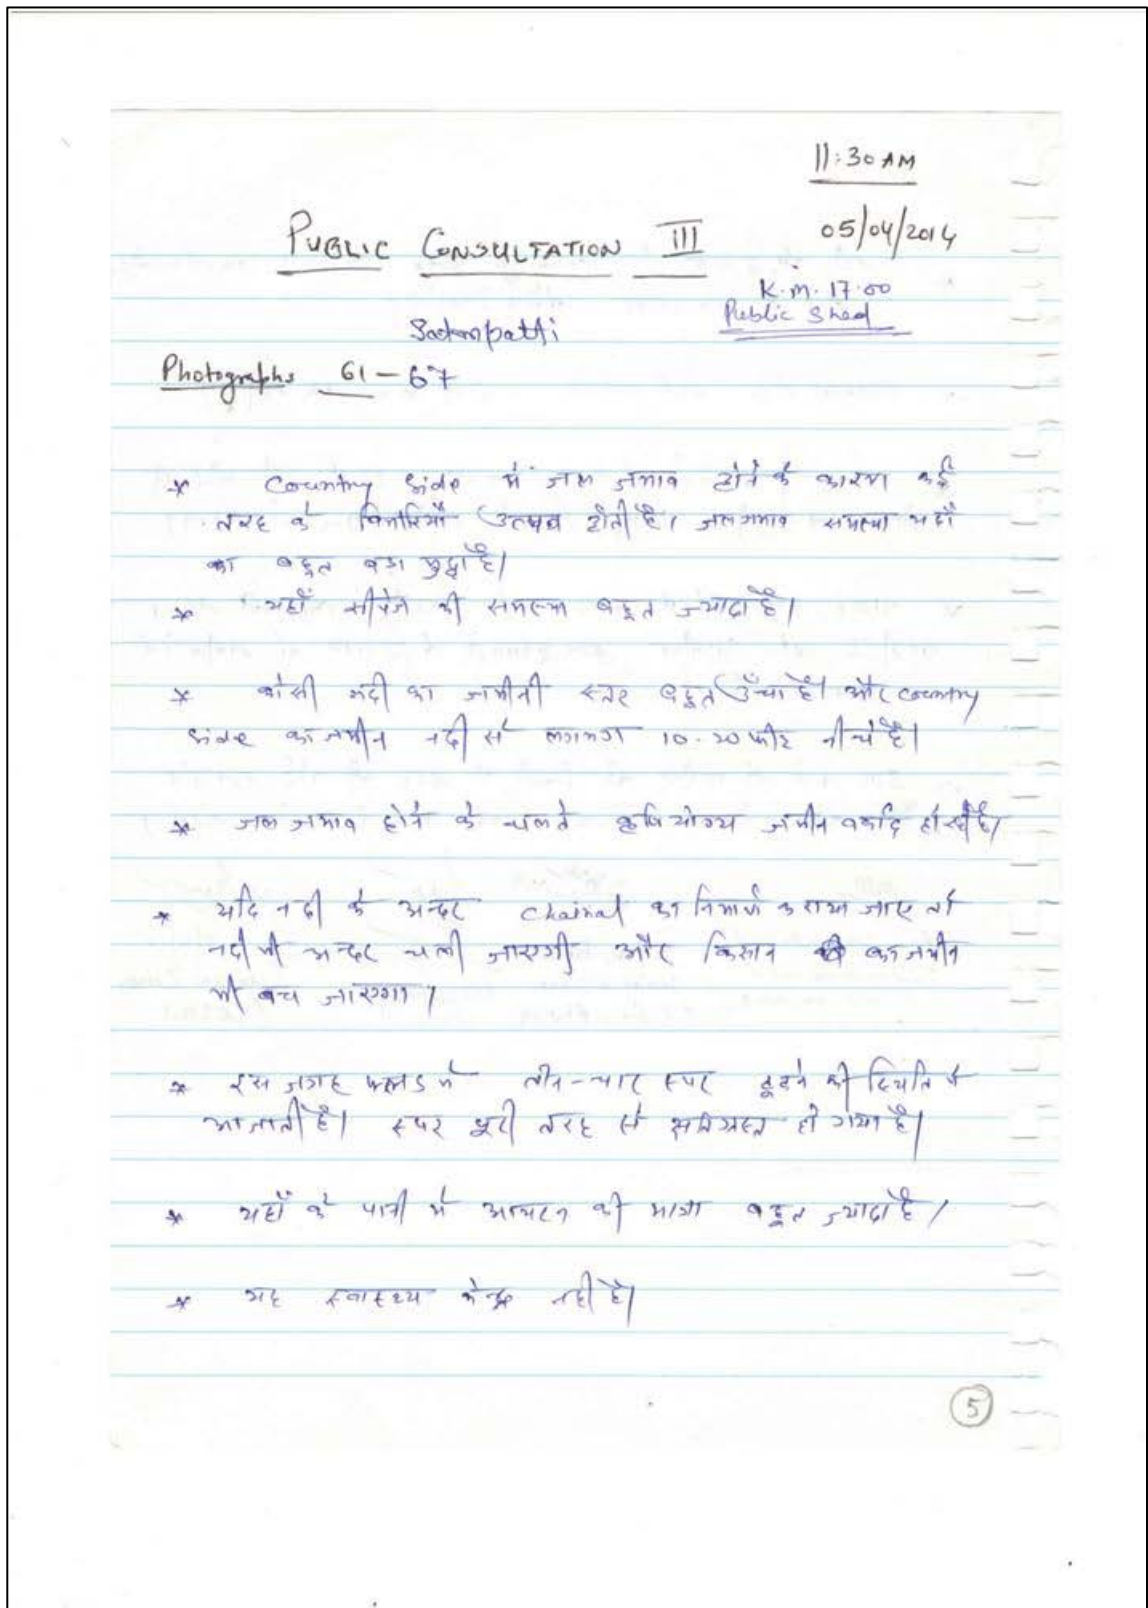 11:30 AM
PUBLIC CONSULTATION III
05/04/2014
K.m. 17.00
Public Shed
Photographs 61-67
* Country side में जल जमाव होने के कारण कई
तरह के बिमारियाँ उत्पन्न होती है। जलजमाव समस्या यहाँ
का बहुत बडा मुद्दा है।
* यहाँ सीपेज की समस्या बहुत ज्यादा है।
* कोसी नदी का जमीनी स्तर बहुत उँचा है। और country
side का जमीन नदी से लगभग 10-20 फीट नीचे है।
* जल जमाव होने के चलते कृषि योग्य जमीन बर्बाद हो रही है।
* यदि नदी के अन्दर chainal का निमार्ण कराया जाए तो
नदी भी अन्दर चली जाएगी और किसान का जमीन
भी बच जाएगा।
* इस जगह फ्लड में तीन-चार स्पर टूटने की स्थिति में
आ जाती है। स्पर पूरी तरह से क्षतिग्रस्त हो गया है।
* यहाँ के पानी में आयरन की मात्रा बहुत ज्यादा है।
* यह स्वास्थ्य केन्द्र नही है।
5